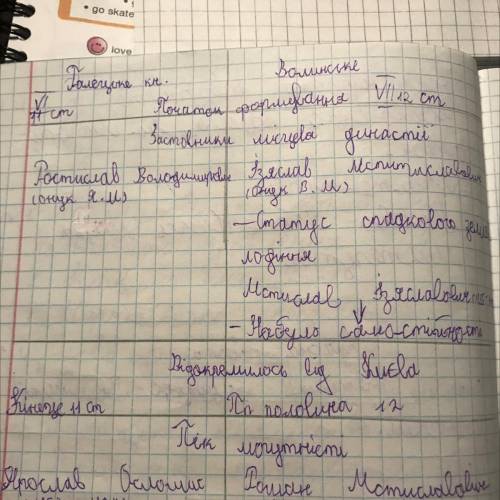 • go skate
love
Галецьке кн. Волинське
VI 11 ст Початок формування VII 12 ст
Застовники місцева династії
Ростислав Володимирович Ізяслав Мститиславович
(онук Я.М) (онук В.М)
— Статус спадкового
лодіння
Мстислав Ізяславович
— Набуло само-стійності
Відокремилось від Києва
Кінець 11 ст Пп половина 12
Пік могутності
Ярослав Осломис Роман Мстиславович